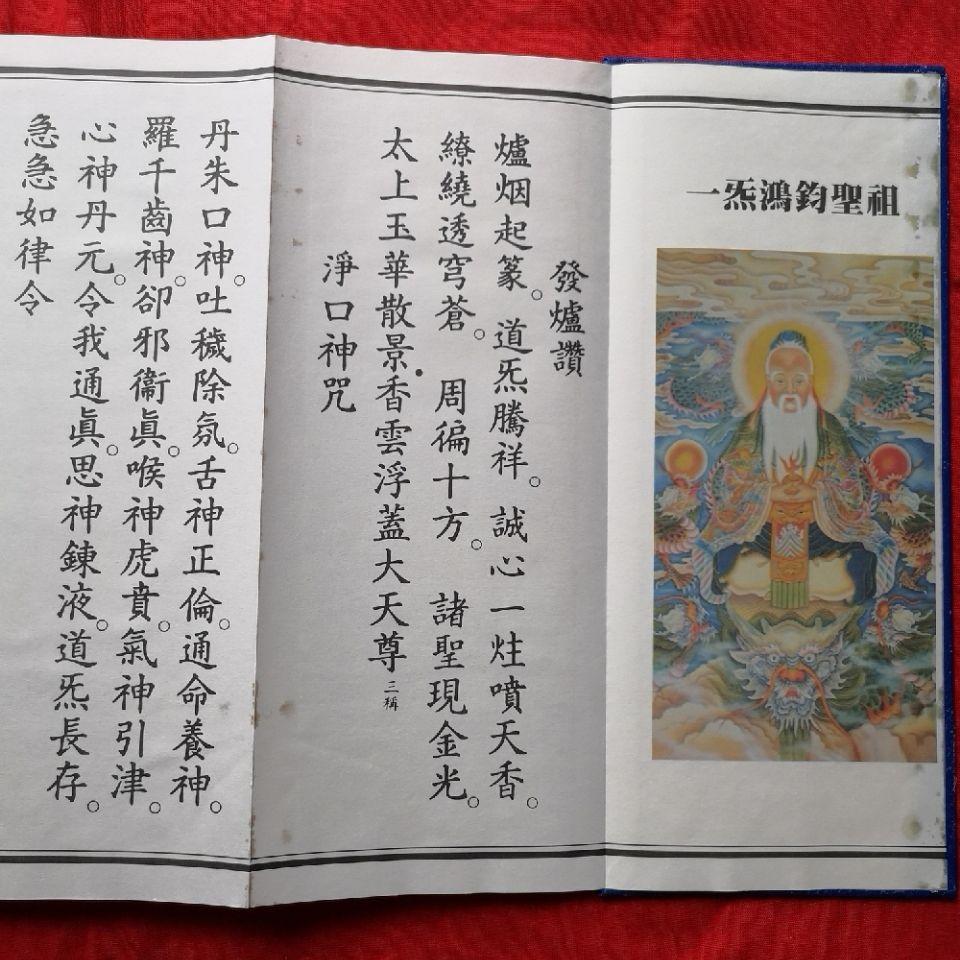 一炁鴻鈞聖祖
發爐讚
爐烟起篆。道炁騰祥。誠心一炷噴天香。
繚繞透穹蒼。周徧十方。諸聖現金光。
太上玉華散景香雲浮蓋大天尊三稱
淨口神咒
丹朱口神。吐穢除氛。舌神正倫。通命養神。
羅千齒神。卻邪衞眞。喉神虎賁。氣神引津。
心神丹元。令我通眞。思神鍊液。道炁長存。
急急如律令